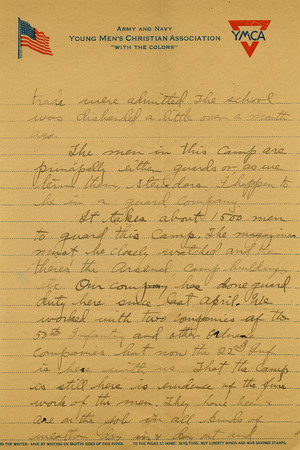 ARMY AND NAVY
YOUNG MEN'S CHRISTIAN ASSOCIATION
"WITH THE COLORS"
YMCA
trade were admitted. The school
was disbanded a little over a month
ago.
The men in this Camp are
principally either guards or, as we
term them, Happen to
be in a guard Company.
It takes about 1500 men
to guard this Camp. The magazines
must be closely watched and then
there's the Arsenal, Camp buildings
etc. Our company has done guard
duty here since last April. We
worked with two companies of the
50th Infantry and other
Companies but now the 22nd Inf
is here with us. That the Camp
is still here is evidence of the fine
work of the men. They have been
are on the job in all kinds of
weather day in & day out and
TO THE WRITER: SAVE BY WRITING ON BOTH SIDES OF THIS PAPER
TO THE FOLKS AT HOME: SAVE FOOD, BUY LIBERTY BONDS AND WAR SAVINGS STAMPS.